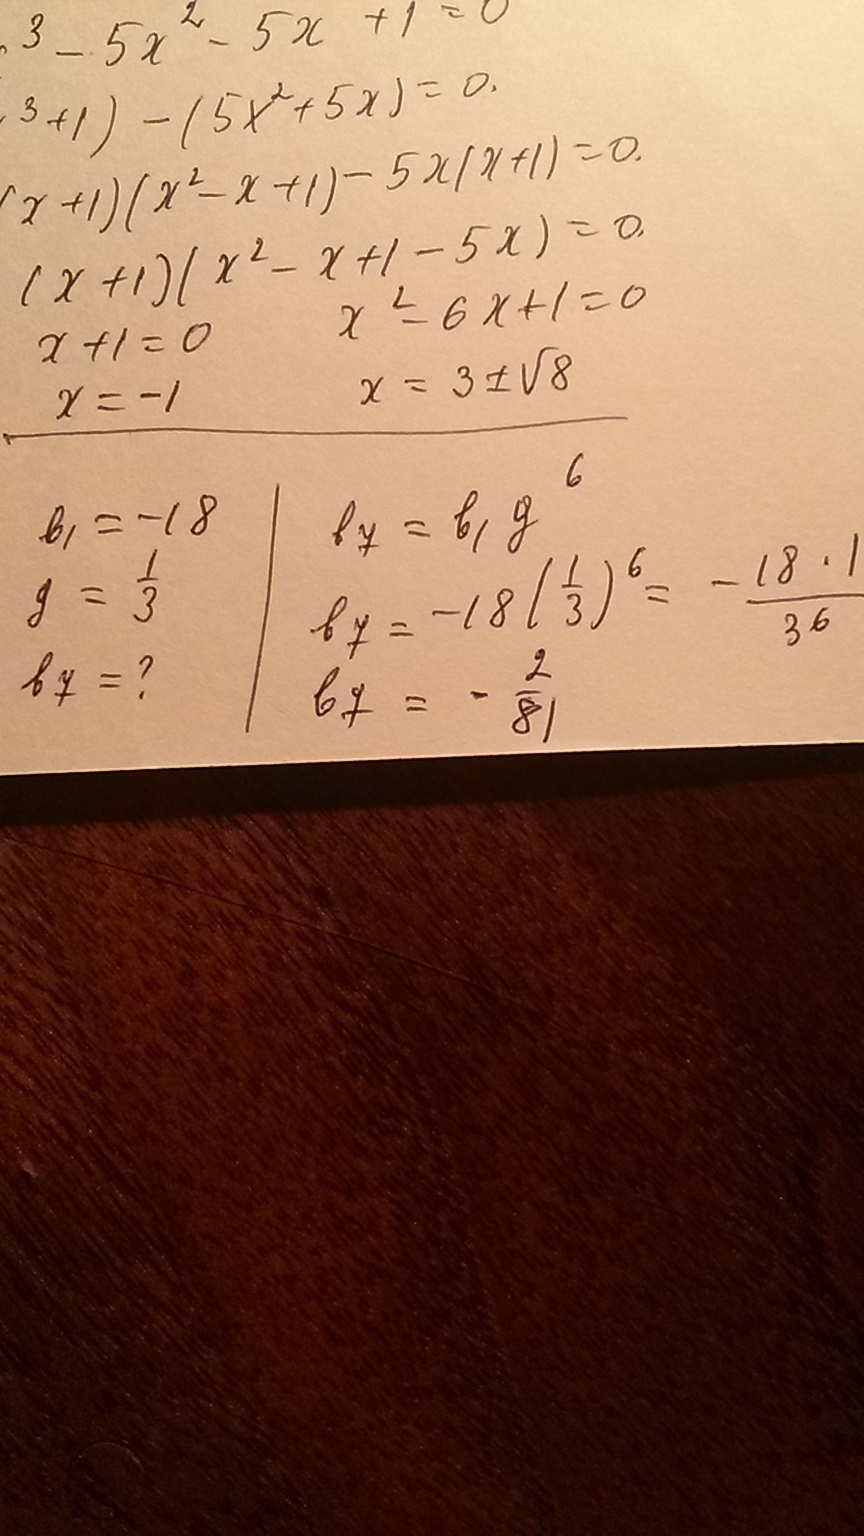 ³ - 5x² - 5x + 1 = 0
³ + 1) - (5x² + 5x) = 0.
(x + 1)(x² - x + 1) - 5x(x + 1) = 0.
(x + 1)(x² - x + 1 - 5x) = 0.
x + 1 = 0 x² - 6x + 1 = 0
x = -1 x = 3 ± √8
b₁ = -18
g = 1/3
b7 = ?
b7 = b₁ g⁶
b7 = -18(1/3)⁶ = - 18 · 1 / 3⁶
b7 = - 2/81